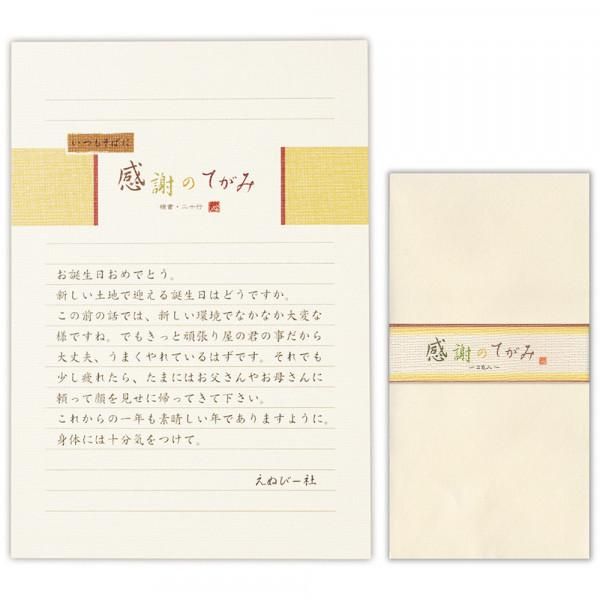 いつもそばに
感謝のてがみ
横書・二十行
お誕生日おめでとう。
新しい土地で迎える誕生日はどうですか。
この前の話では、新しい環境でなかなか大変な
様ですね。でもきっと頑張り屋の君の事だから
大丈夫、うまくやれているはずです。それでも
少し疲れたら、たまにはお父さんやお母さんに
頼って顔を見せに帰ってきて下さい。
これからの一年も素晴しい年でありますように。
身体には十分気をつけて。
えぬびー社
感謝のてがみ